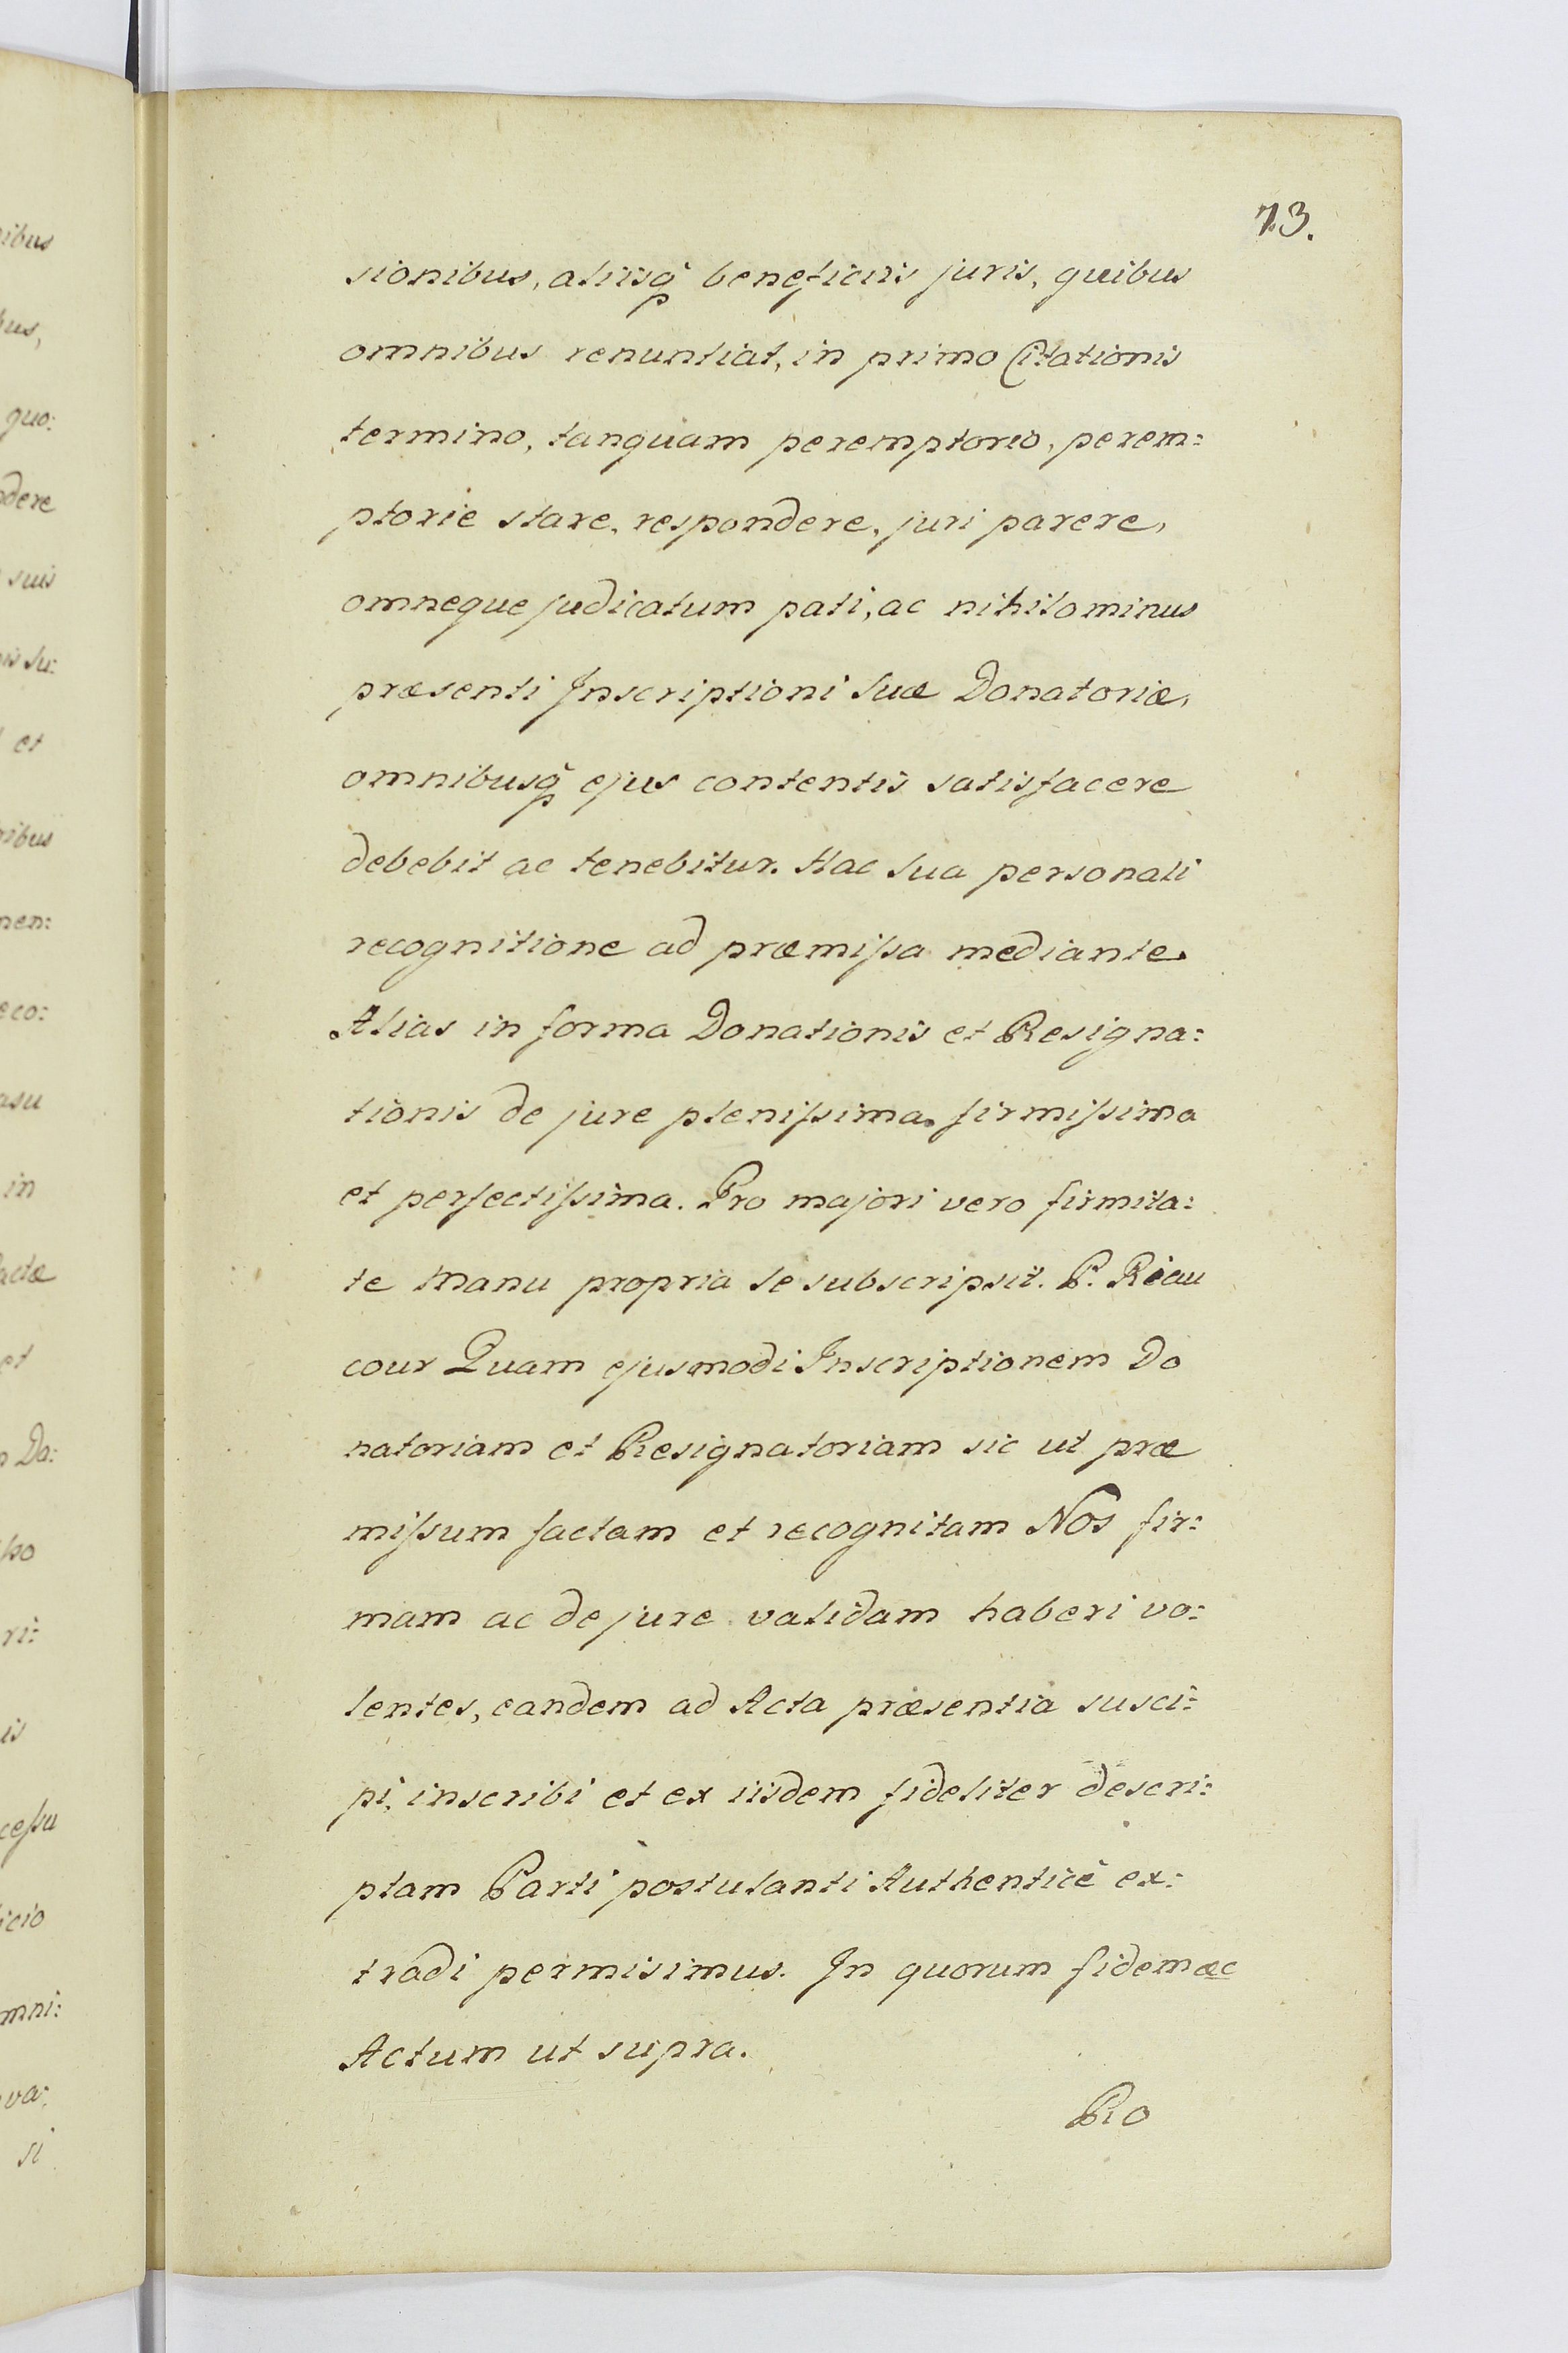 73.
sionibus, aliisq beneficiis juris, quibus
omnibus renuntiat, in primo Citationis
termino, tanquam peremptorio, perem:
ptorie stare, respondere, juri parere,
omneque judicatum pati, ac nihilominus
præsenti Inscriptioni Suæ Donatoriæ,
omnibusq ejus contentis satisfacere
debebit ac tenebitur. Hac Sua personali
recognitione ad præmissa mediante.
Alias in forma Donationis et Resigna:
tionis de jure plenissima, firmissima
et perfectissima. Pro majori vero firmita:
te Manu propria se subscripsit. P. Riau
cour Quam ejusmodi Inscriptionem Do
natoriam et Resignatoriam sic ut præ
missum factam et recognitam Nos fir:
mam ac de jure validam haberi vo:
lentes, eandem ad Acta præsentia susci:
pi, inscribi et ex iisdem fideliter descri:
ptam Parti postulanti Authenticè ex:
tradi permisimus. In quorum fidem &c
Actum ut supra.
Pro
ibus
bus,
quo:
dere
suis
is su:
et
ibus
men:
eco:
asu
in
actæ
et
Do:
sso
ri:
is
cessu
icio
mni:
va:
si